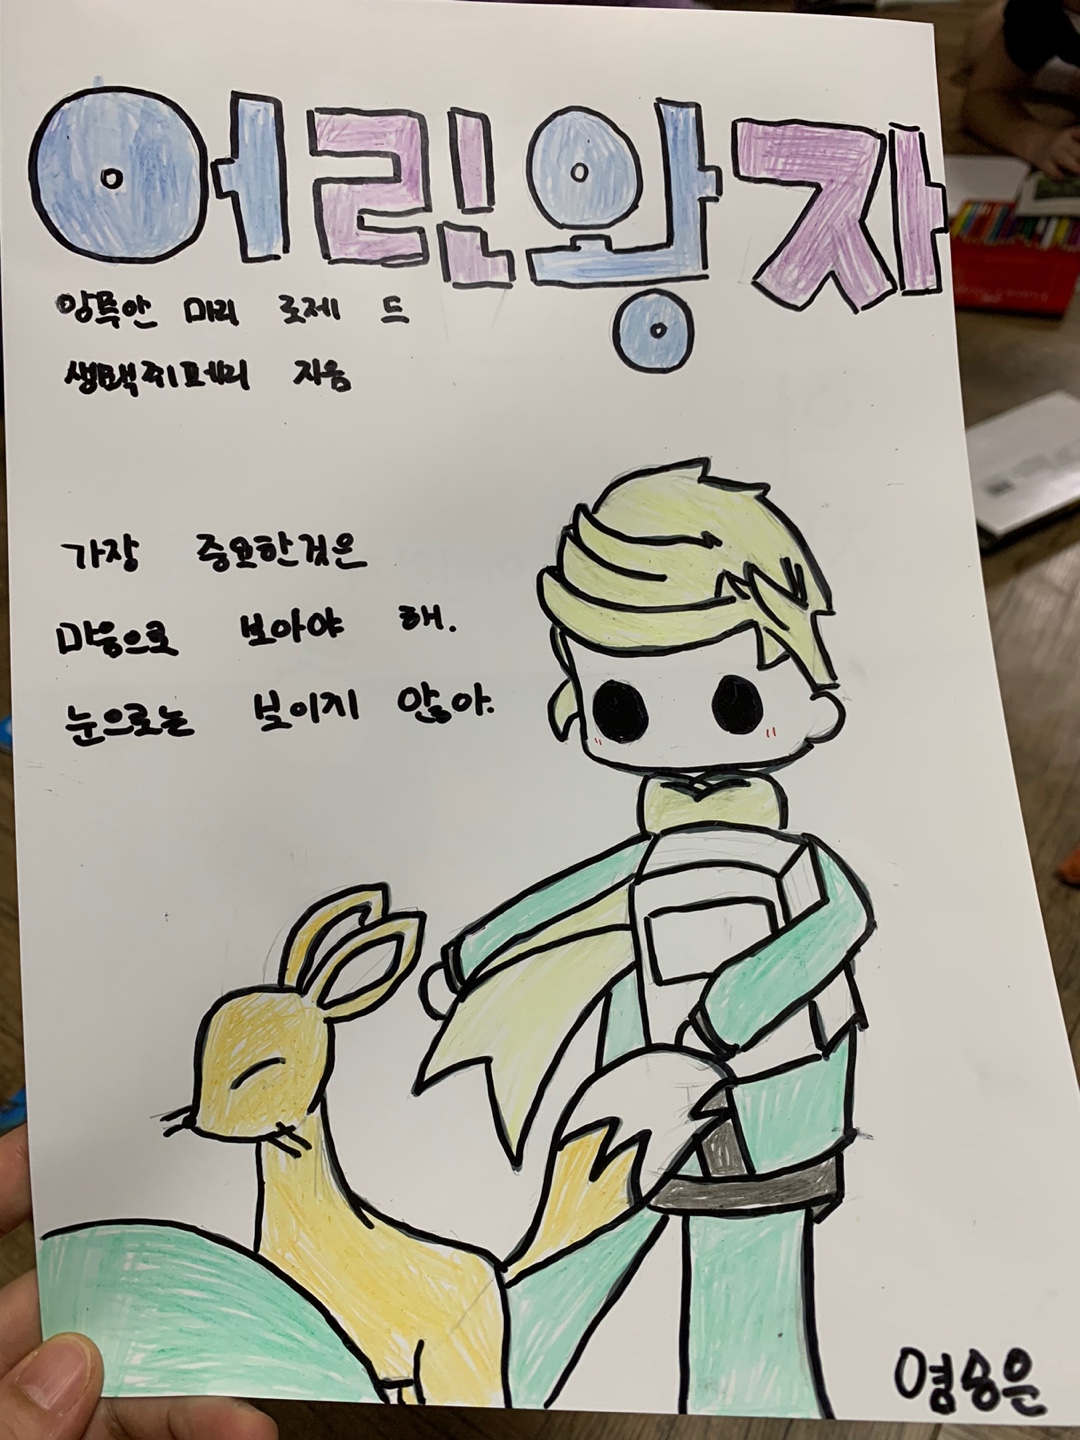 어린왕자
앙투안 마리 로제 드
생택쥐페리 지음
가장 중요한것은
마음으로 보아야 해.
눈으로는 보이지 않아.